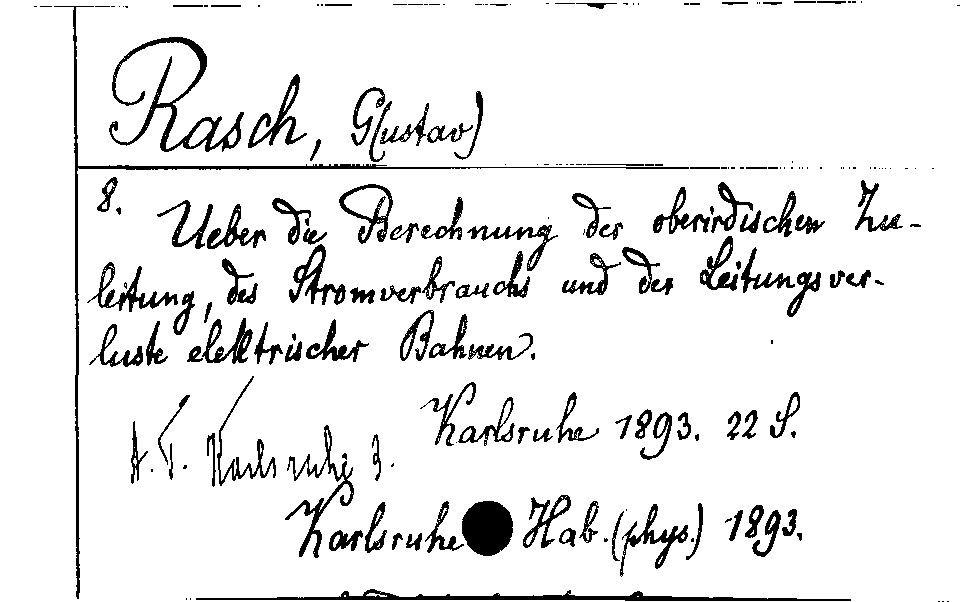 Rasch, G(ustav)
8.
Ueber die Berechnung der oberirdischen Zu-
leitung, des Stromverbrauchs und der Leitungsver-
luste elektrischer Bahnen.
Karlsruhe 1893. 22 S.
A. T. Karlsruhe 3.
Karlsruhe Hab. (phys.) 1893.